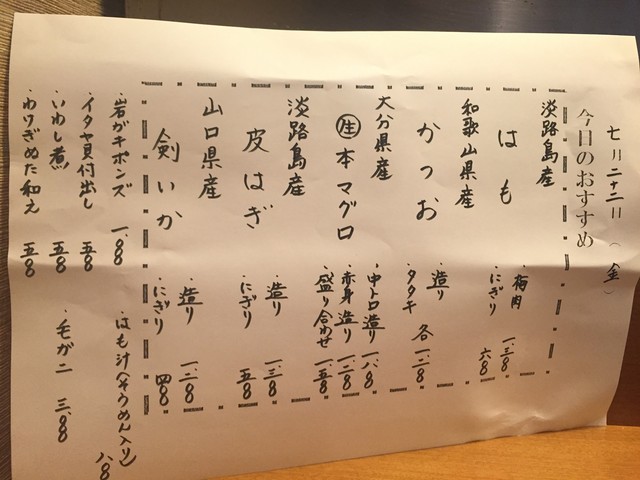 七月二十二日(金)
今日のおすすめ
淡路島産
はも
・梅肉 一、三〇〇
・にぎり 六〇〇
和歌山県産
かつお
・造り
・タタキ 各一、二〇〇
大分県産
生 本マグロ
・中トロ造り 一、八〇〇
・赤身造り 一、二〇〇
・盛り合わせ 一、五〇〇
淡路島産
皮はぎ
・造り 一、三〇〇
・にぎり 五〇〇
山口県産
剣いか
・造り 一、二〇〇
・にぎり 四〇〇
・岩ガキポンズ 一、〇〇〇
・イタヤ貝付出し 五〇〇
・いわし煮 五〇〇
・わけぎぬた和え 五〇〇
・はも汁(そうめん入り) 八〇〇
・毛ガニ 三、〇〇〇